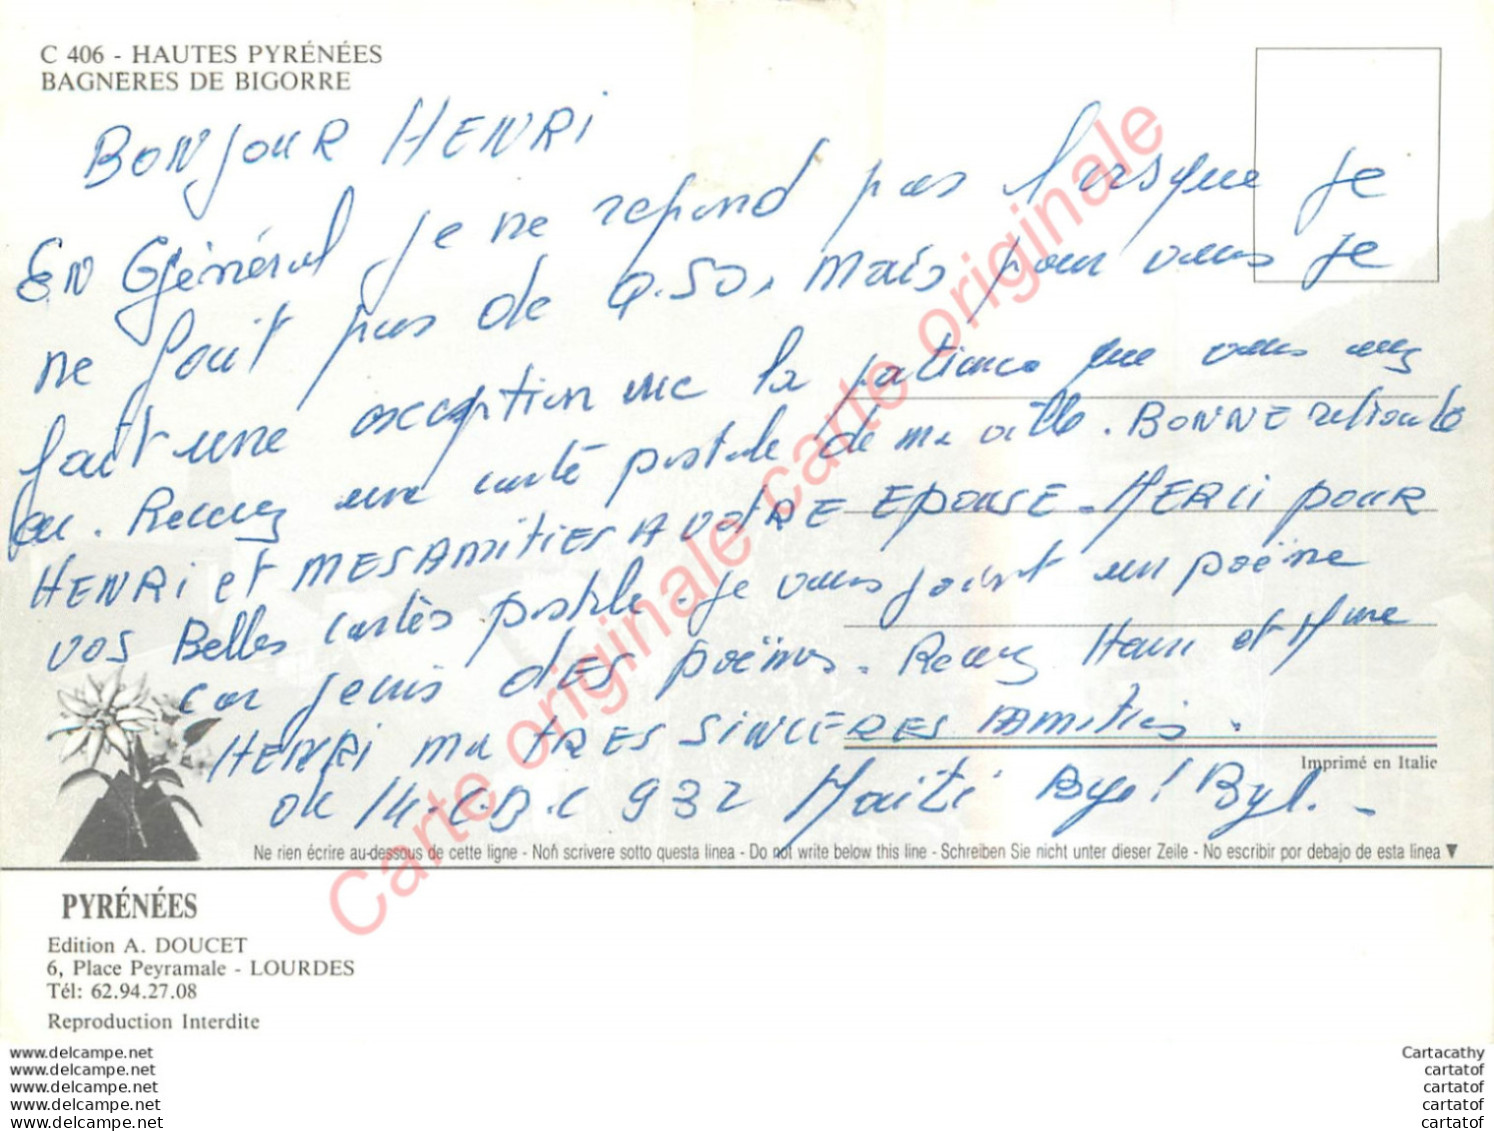 C 406 - HAUTES PYRÉNÉES
BAGNÈRES DE BIGORRE
BONJOUR HENRI
EN Général je ne repond pas lorsque je
ne fait pas de Q.SO, mais pour vous je
fait une exception vue la patience que vous avez
eu. Recevez une carte postale de ma ville. BONNE retraite
HENRI et MES AMITIES A VOTRE EPOUSE. MERCI pour
vos Belles cartes postale. Je vous joint un poëme
car j'ecris des poëmes. Recevez Henri et Mme
HENRI ma TRES SINCERES AMitiés.
OK 14. C.B.C 932 Haiti Bye! Byl. -
Imprimé en Italie
Ne rien écrire au-dessous de cette ligne - Noñ scrivere sotto questa linea - Do not write below this line - Schreiben Sie nicht unter dieser Zeile - No escribir por debajo de esta linea ▼
PYRÉNÉES
Edition A. DOUCET
6, Place Peyramale - LOURDES
Tél: 62.94.27.08
Reproduction Interdite
Carte originale carte originale carte originale
www.delcampe.net
www.delcampe.net
www.delcampe.net
www.delcampe.net
www.delcampe.net
Cartacathy
cartatof
cartatof
cartatof
cartatof